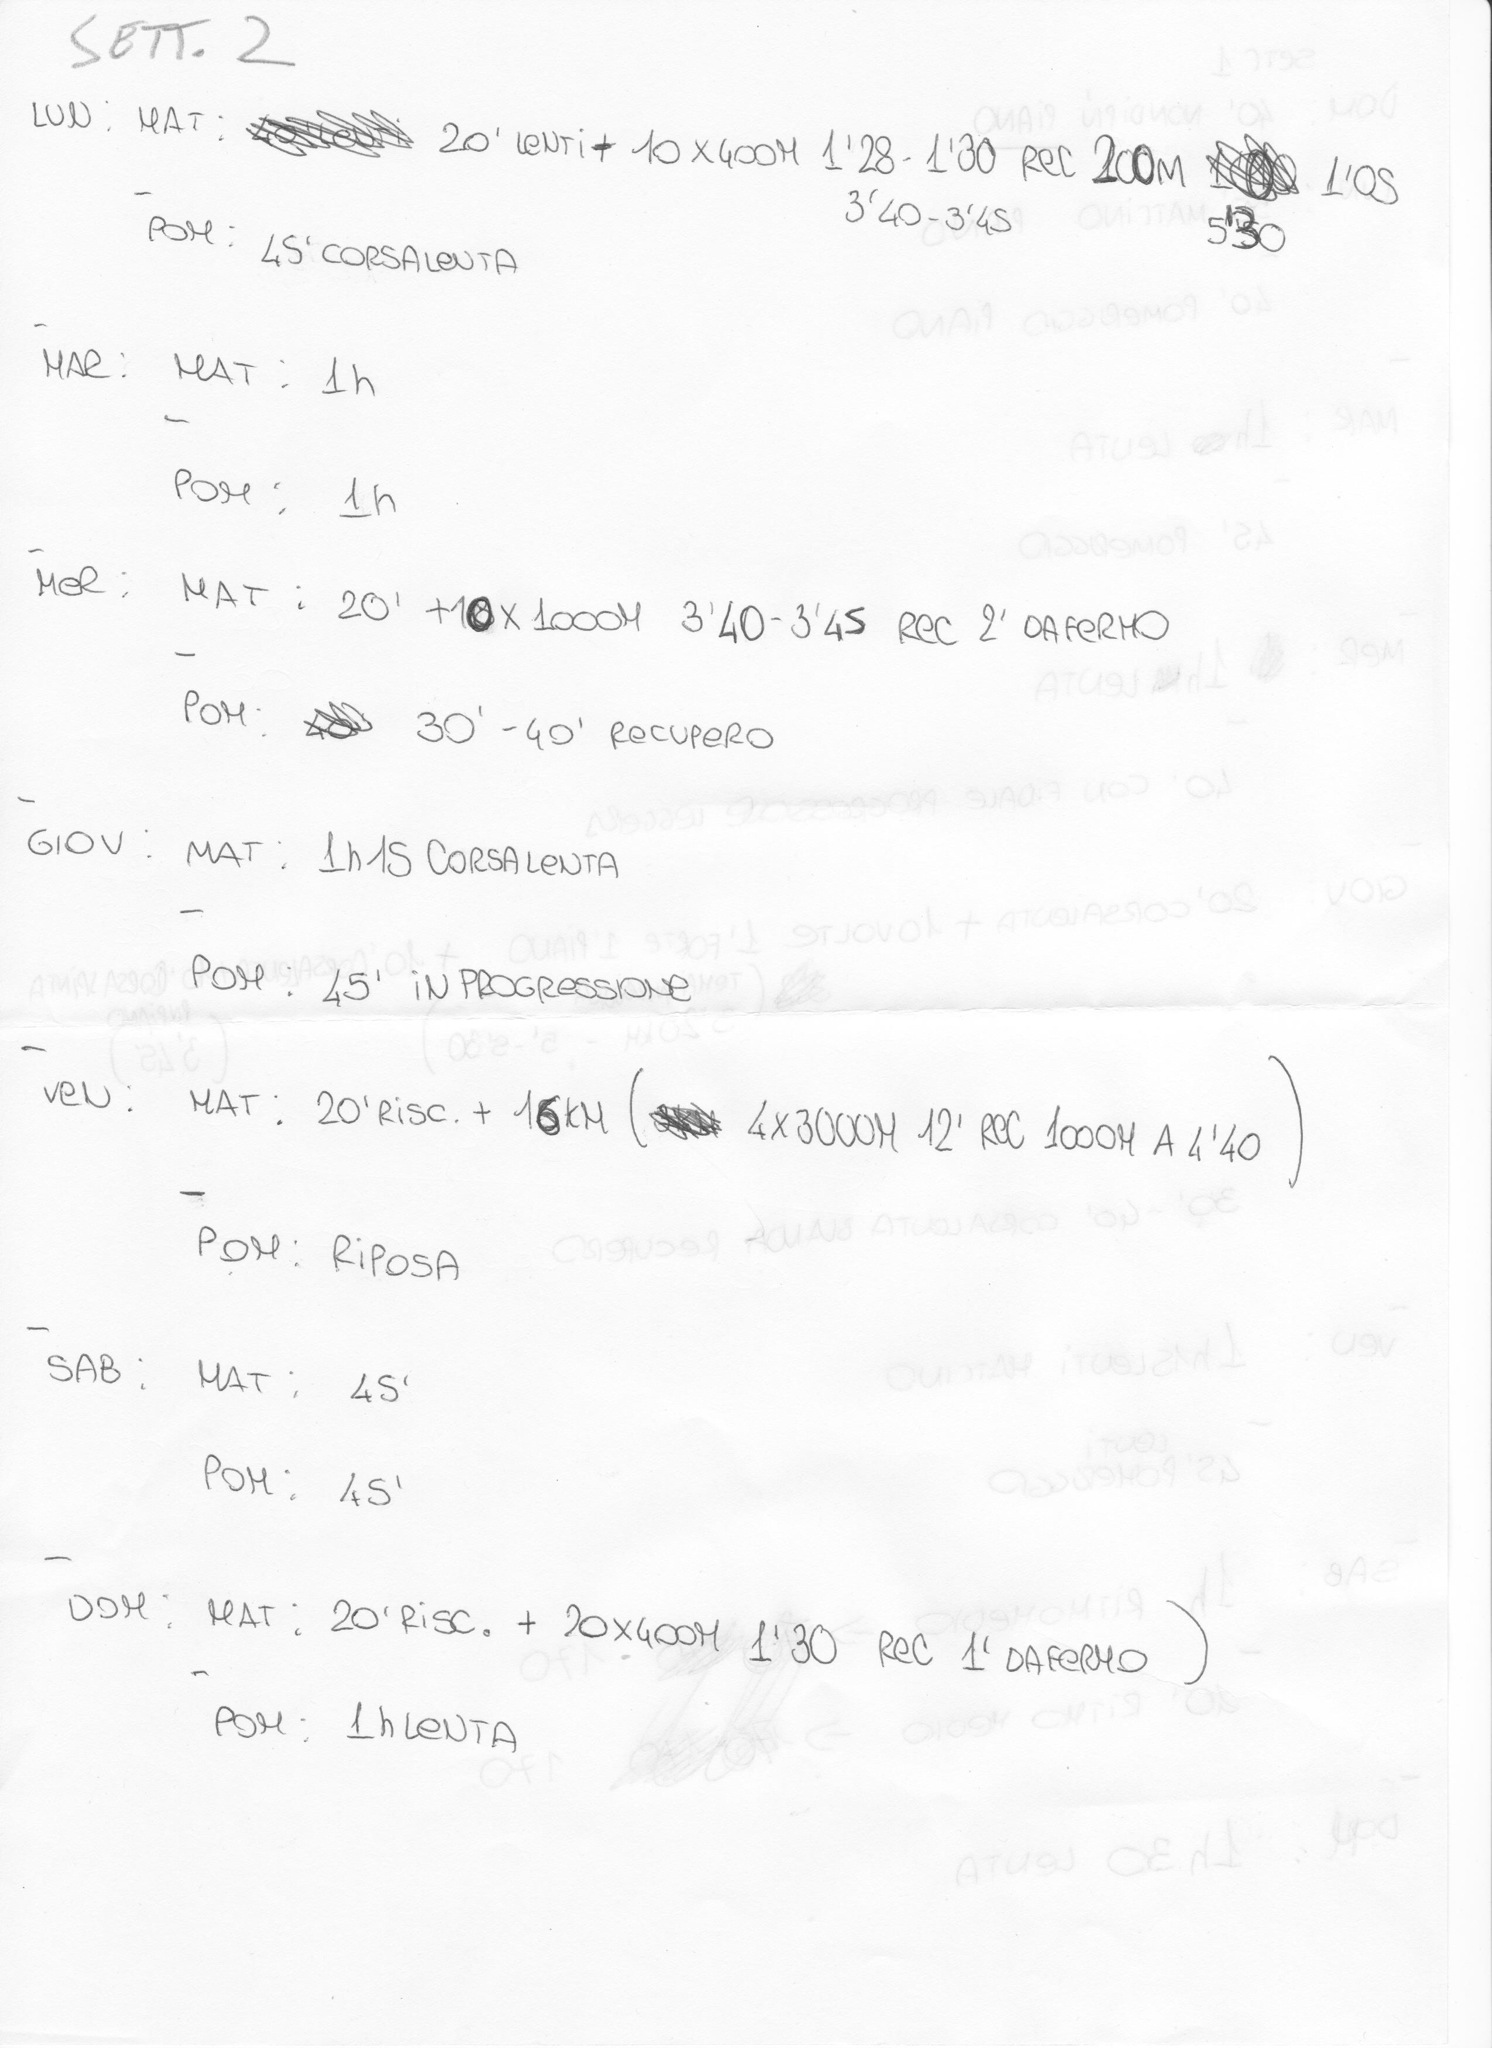 SETT. 2
LUN: MAT: 20' LENTI + 10X400M 1'28-1'30 REC 200M 1'05
3'40-3'45 5'30
POM: 45' CORSA LENTA
MAR: MAT: 1h
POM: 1h
MER: MAT: 20' +10X1000M 3'40-3'45 REC 2' DA FERMO
POM: 30'-40' RECUPERO
GIOV: MAT: 1h15 CORSA LENTA
POM: 45' IN PROGRESSIONE
VEN: MAT: 20' RISC. + 16KM ( 4X3000M 12' REC 1000M A 4'40 )
POM: RIPOSA
SAB: MAT: 45'
POM: 45'
DOM: MAT: 20' RISC. + 20X400M 1'30 REC 1' DA FERMO )
POM: 1h LENTA